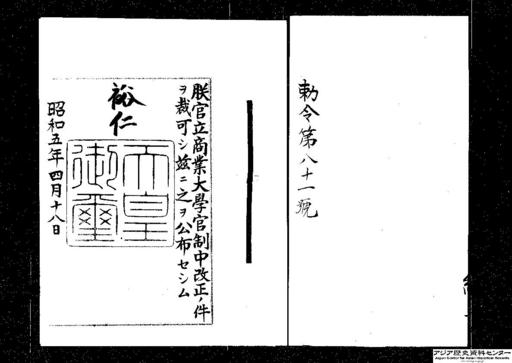 勅令第八十一號
朕官立商業大學官制中改正ノ件
ヲ裁可シ茲ニ之ヲ公布セシム
裕仁
天皇
御璽
昭和五年四月十八日
アジア歴史資料センター
Japan Center for Asian Historical Records